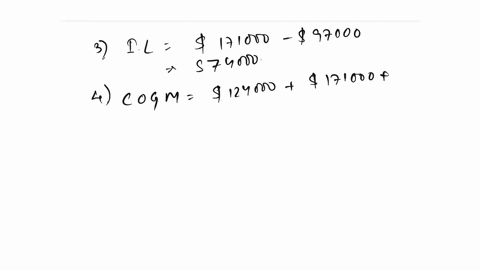 3) I.L = $ 171000 - $97000
= $74000.
4) COGM = $124000 + $171000 +